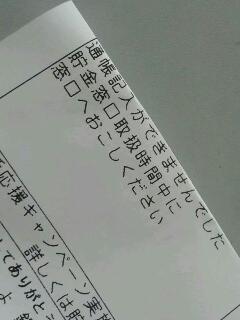 通帳記入ができませんでした
貯金窓口取扱時間中に
窓口へおこしください
応援キャンペーン実施
詳しくは貯
てありがとう